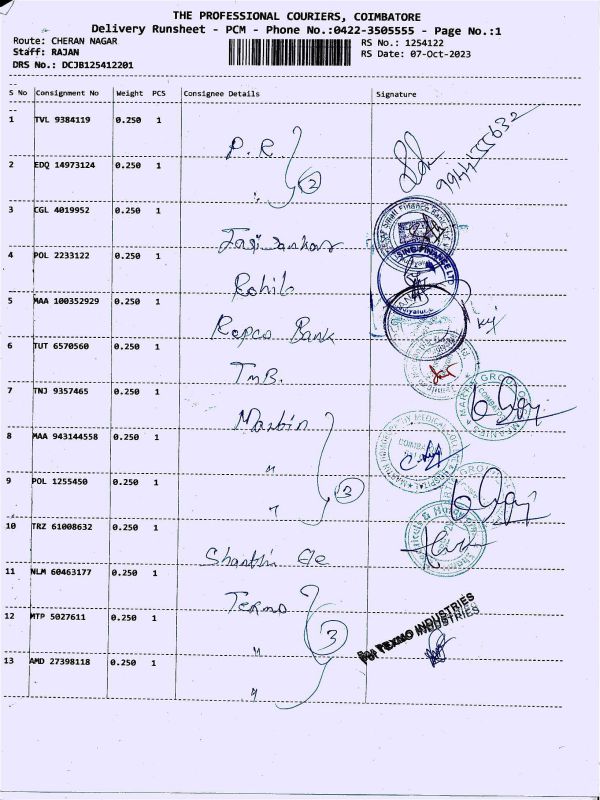 THE PROFESSIONAL COURIERS, COIMBATORE
Delivery Runsheet - PCM - Phone No.:0422-3505555 - Page No.:1
Route: CHERAN NAGAR
Staff: RAJAN
DRS No.: DCJB125412201
RS No.: 1254122
RS Date: 07-Oct-2023
S No Consignment No Weight PCS Consignee Details Signature
1 TVL 9384119 0.250 1 P.R.
9944155632
2 EDQ 14973124 0.250 1 2
3 CGL 4019952 0.250 1
Small Finance Bank
4 POL 2233122 0.250 1 Rohib
FINANCE LTD
5 MAA 100352929 0.250 1 Repco Bank
6 TUT 6570560 0.250 1 TMB.
7 TNJ 9357465 0.250 1 Martin
MARTIN GROUP
8 MAA 943144558 0.250 1 "
MEDICAL COLL
COIMBATORE
9 POL 1255450 0.250 1 " 3
10 TRZ 61008632 0.250 1 Shanthi
11 NLM 60463177 0.250 1 Texmo
12 MTP 5027611 0.250 1 " 3
For TEXMO INDUSTRIES
13 AMD 27398118 0.250 1 "